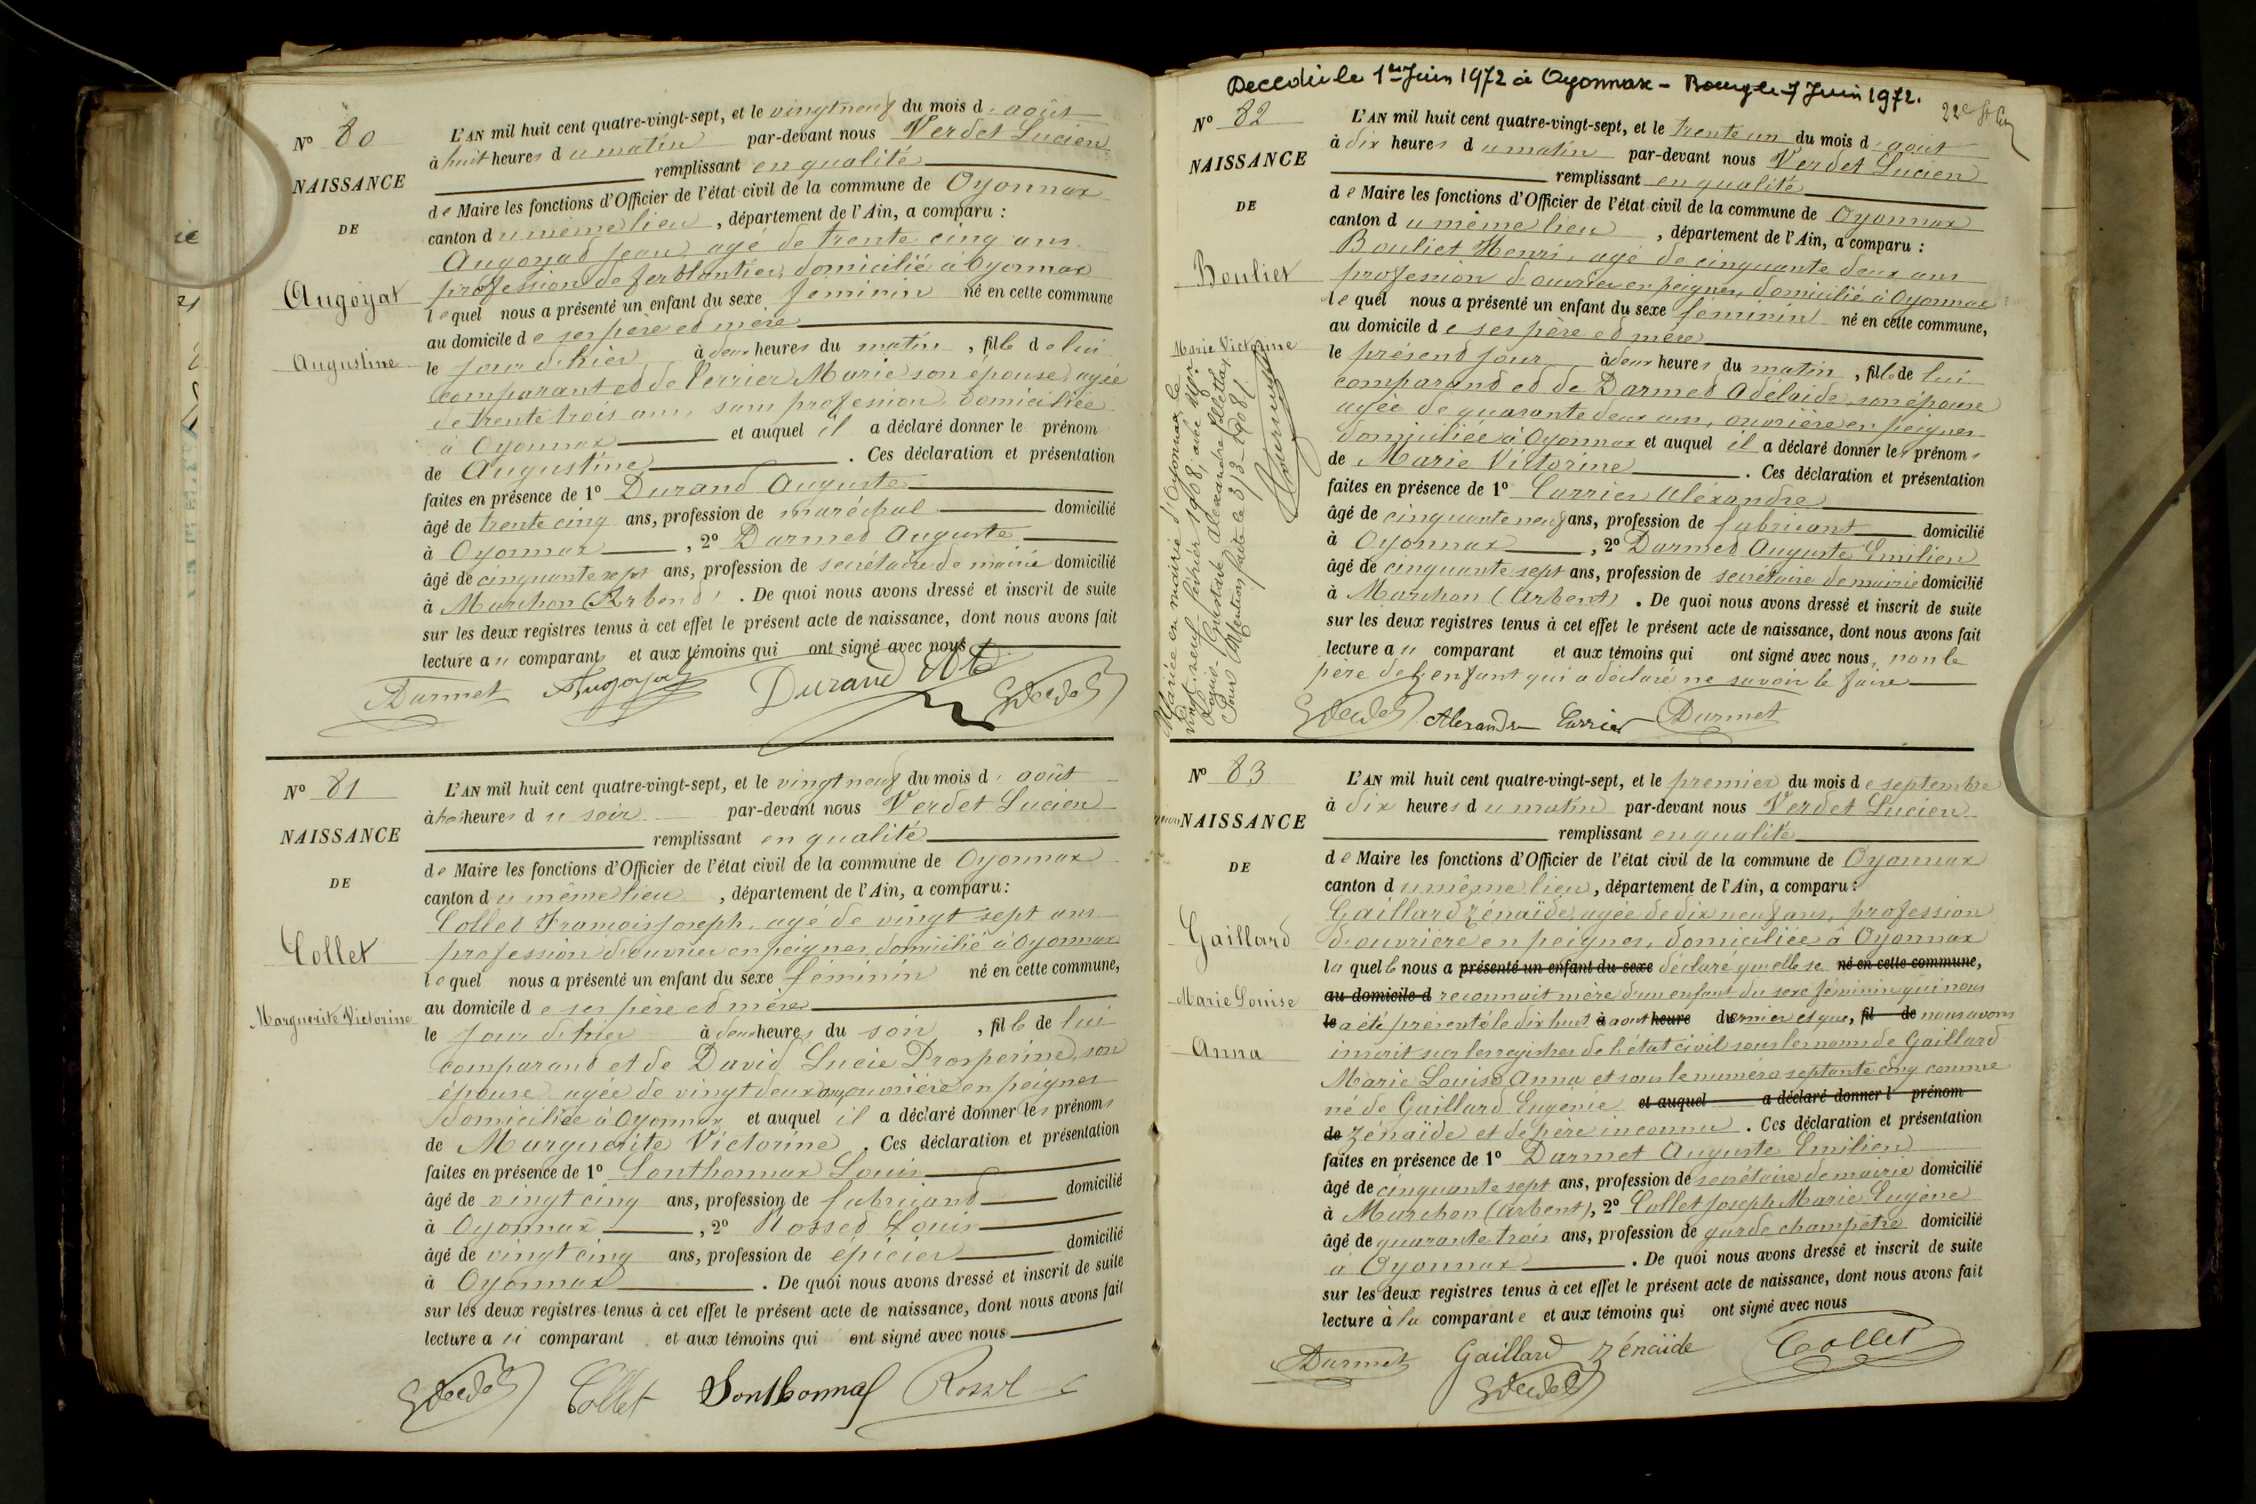 N° 80
NAISSANCE
DE
Augoyat
Augustine
L'AN mil huit cent quatre-vingt-sept, et le vingt neuf du mois d'août
à huit heures du matin par-devant nous Verdet Lucien
remplissant en qualité
de Maire les fonctions d'Officier de l'état civil de la commune de Oyonnax
canton du même lieu, département de l'Ain, a comparu :
Augoyat Jean, agé de trente cinq ans
profession de ferblantier, domicilié à Oyonnax
lequel nous a présenté un enfant du sexe féminin né en cette commune
au domicile de ses père et mère
le jour d'hier à deux heures du matin, fille de lui
comparant et de Verrier Marie son épouse, agée
de trente trois ans, sans profession, domiciliée
à Oyonnax et auquel il a déclaré donner le prénom
de Augustine. Ces déclaration et présentation
faites en présence de 1° Durand Auguste
âgé de trente cinq ans, profession de maréchal domicilié
à Oyonnax, 2° Darmet Auguste
âgé de cinquante sept ans, profession de secrétaire de mairie domicilié
à Marchon (Arbent). De quoi nous avons dressé et inscrit de suite
sur les deux registres tenus à cet effet le présent acte de naissance, dont nous avons fait
lecture au comparant et aux témoins qui ont signé avec nous
Darmet Augoyat Durand Verdet
N° 81
NAISSANCE
DE
Collet
Marguerite Victorine
L'AN mil huit cent quatre-vingt-sept, et le vingt neuf du mois d'août
à heures du soir par-devant nous Verdet Lucien
remplissant en qualité
de Maire les fonctions d'Officier de l'état civil de la commune de Oyonnax
canton du même lieu, département de l'Ain, a comparu :
Collet François Joseph, agé de vingt sept ans
profession d'ouvrier en peignes, domicilié à Oyonnax
lequel nous a présenté un enfant du sexe féminin né en cette commune,
au domicile de ses père et mère
le jour d'hier à deux heures du soir, fille de lui
comparant et de David Lucie Prosperine, son
épouse agée de vingt deux ans, ouvrière en peignes
domiciliée à Oyonnax et auquel il a déclaré donner les prénoms
de Marguerite Victorine. Ces déclaration et présentation
faites en présence de 1° Sonthonnax Louis
âgé de vingt cinq ans, profession de fabricant domicilié
à Oyonnax, 2° Rosset Louis
âgé de vingt cinq ans, profession de épicier domicilié
à Oyonnax. De quoi nous avons dressé et inscrit de suite
sur les deux registres tenus à cet effet le présent acte de naissance, dont nous avons fait
lecture au comparant et aux témoins qui ont signé avec nous
Verdet Collet Sonthonnax Rosset
Decedée le 1er Juin 1972 à Oyonnax - Bourg le 7 Juin 1972.
N° 82
NAISSANCE
DE
Bouliet
Marie Victorine
Mariée en mairie d'Oyonnax le
vingt-neuf février 1908, avec Mr.
Gustave Alexandre
Pour Mention faite le 3/3-1908
L'AN mil huit cent quatre-vingt-sept, et le trente un du mois d'août
à dix heures du matin par-devant nous Verdet Lucien
remplissant en qualité
de Maire les fonctions d'Officier de l'état civil de la commune de Oyonnax
canton du même lieu, département de l'Ain, a comparu :
Bouliet Henri, agé de cinquante deux ans
profession d'ouvrier en peignes, domicilié à Oyonnax
lequel nous a présenté un enfant du sexe féminin né en cette commune,
au domicile de ses père et mère
le présent jour à deux heures du matin, fille de lui
comparant et de Darmet Adélaïde son épouse
agée de quarante deux ans, ouvrière en peignes
domiciliée à Oyonnax et auquel il a déclaré donner les prénoms
de Marie Victorine. Ces déclaration et présentation
faites en présence de 1° Carrier Alexandre
âgé de cinquante neuf ans, profession de fabricant domicilié
à Oyonnax, 2° Darmet Auguste Emilien
âgé de cinquante sept ans, profession de secrétaire de mairie domicilié
à Marchon (Arbent). De quoi nous avons dressé et inscrit de suite
sur les deux registres tenus à cet effet le présent acte de naissance, dont nous avons fait
lecture au comparant et aux témoins qui ont signé avec nous, non le
père de l'enfant qui a déclaré ne savoir le faire
Verdet Alexandre Carrier Darmet
N° 83
NAISSANCE
DE
Gaillard
Marie Louise
Anna
L'AN mil huit cent quatre-vingt-sept, et le premier du mois de septembre
à dix heures du matin par-devant nous Verdet Lucien
remplissant en qualité
de Maire les fonctions d'Officier de l'état civil de la commune de Oyonnax
canton du même lieu, département de l'Ain, a comparu :
Gaillard Zénaïde, agée de dix neuf ans, profession
d'ouvrière en peignes, domiciliée à Oyonnax
laquelle nous a présenté un enfant du sexe déclaré qu'elle se né en cette commune,
au domicile d reconnait mère d'un enfant du sexe féminin qui nous
le a été présenté le dix huit à aout heure du dernier et que, fil de nous avons
inscrit sur les registres de l'état civil sous les noms de Gaillard
Marie Louise Anna et sous le numéro septante cinq comme
né de Gaillard Eugénie et auquel a déclaré donner l prénom
de Zénaïde et de père inconnu. Ces déclaration et présentation
faites en présence de 1° Darmet Auguste Emilien
âgé de cinquante sept ans, profession de secrétaire de mairie domicilié
à Marchon (Arbent), 2° Collet Joseph Marie Eugène
âgé de quarante trois ans, profession de garde champêtre domicilié
à Oyonnax. De quoi nous avons dressé et inscrit de suite
sur les deux registres tenus à cet effet le présent acte de naissance, dont nous avons fait
lecture à la comparante et aux témoins qui ont signé avec nous
Darmet Gaillard Zénaïde Collet
Verdet